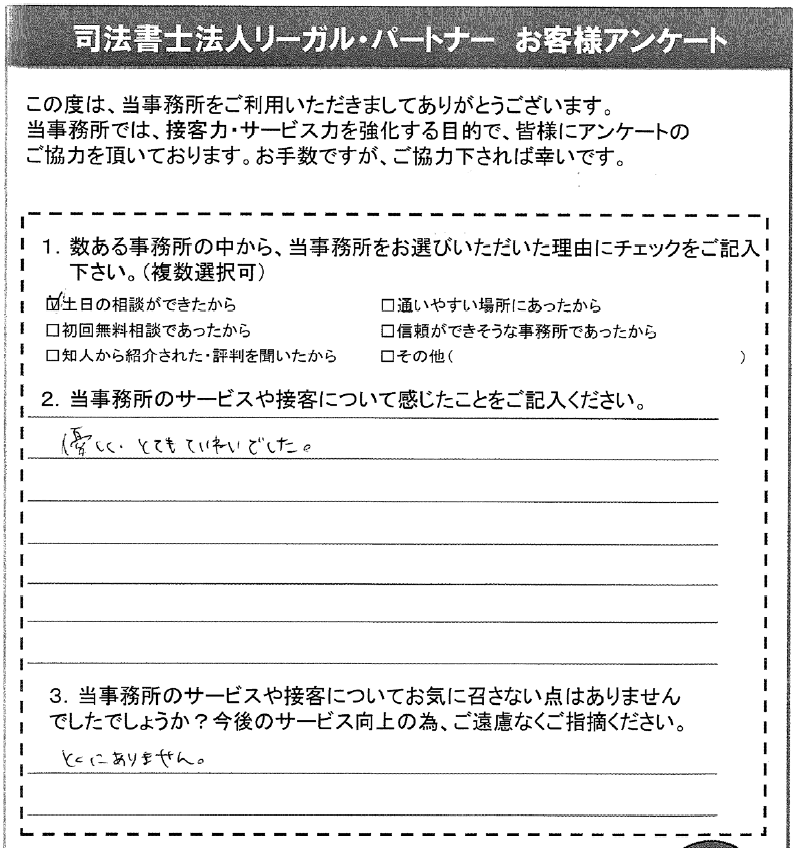 司法書士法人リーガル・パートナー お客様アンケート
この度は、当事務所をご利用いただきましてありがとうございます。
当事務所では、接客力・サービス力を強化する目的で、皆様にアンケートの
ご協力を頂いております。お手数ですが、ご協力下されば幸いです。
1. 数ある事務所の中から、当事務所をお選びいただいた理由にチェックをご記入
下さい。(複数選択可)
☑土日の相談ができたから □通いやすい場所にあったから
□初回無料相談であったから □信頼ができそうな事務所であったから
□知人から紹介された・評判を聞いたから □その他( )
2. 当事務所のサービスや接客について感じたことをご記入ください。
優しく、とてもていねいでした。
3. 当事務所のサービスや接客についてお気に召さない点はありません
でしたでしょうか?今後のサービス向上の為、ご遠慮なくご指摘ください。
とくにありません。